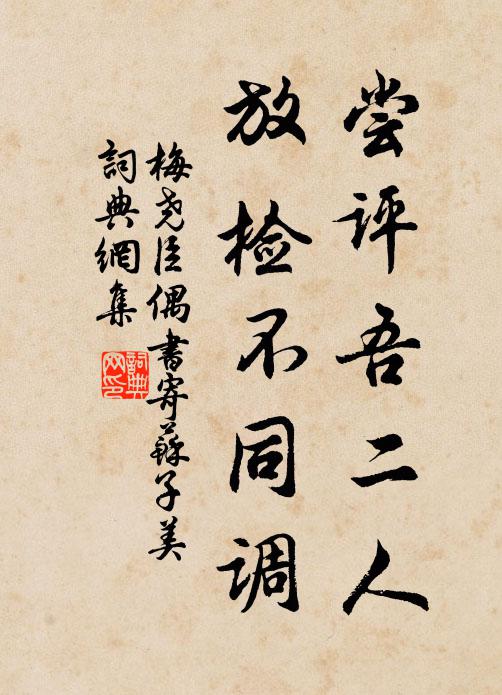 尝评吾二人
放检不同调
梅尧臣偶書寄蘇子美
詞典網集
詞典网印